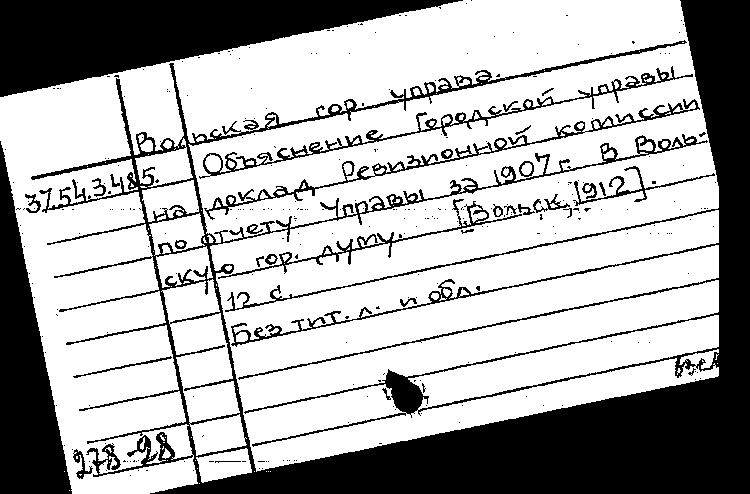 Вольская гор. управа.
37.54.3.485.
Объяснение Городской управы
на доклад Ревизионной комиссии
по отчету Управы за 1907 г. В Воль-
скую гор. думу. [Вольск, 1912].
12 с.
Без тит. л. и обл.
278-98